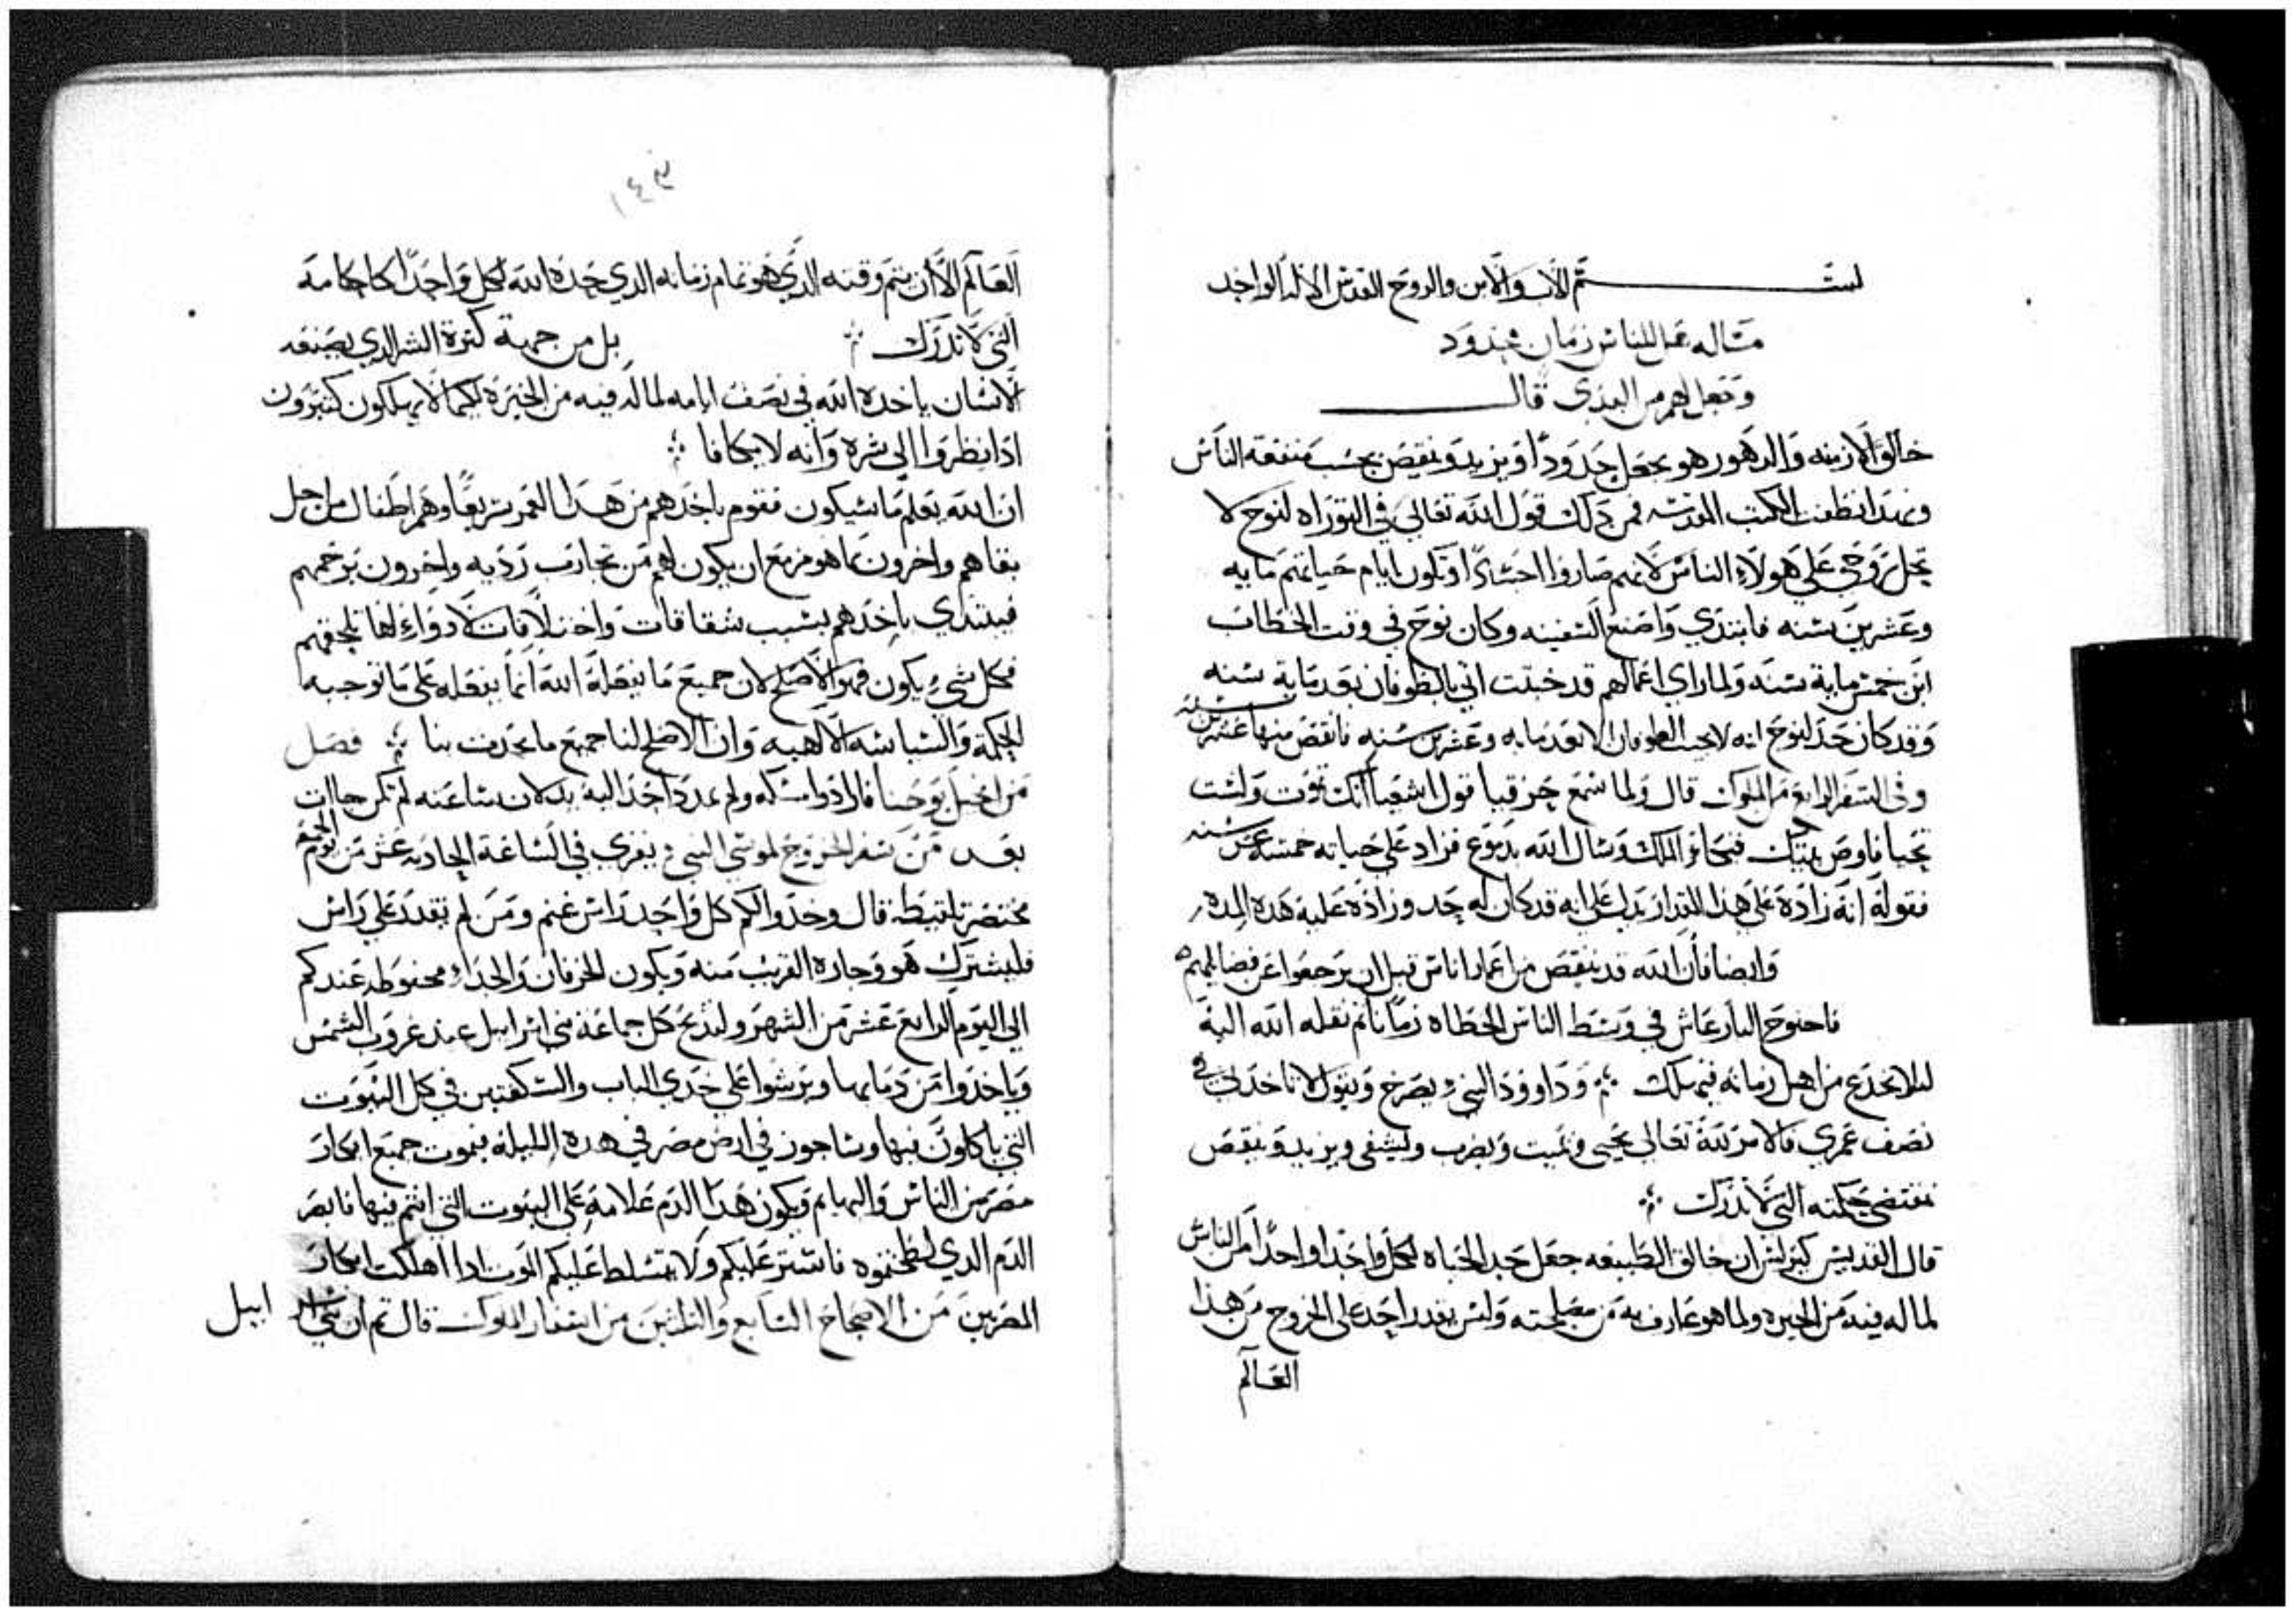 بسم الاب والابن والروح القدس الاله الواحد
مساله هل للناس زمان محدود
خالق الازمنه والدهور هو يجعل حدودًا ويزيد وينقص بحسب منفعة الناس
وبهدا نطقت الكتب المقدسه فمن دلك قول الله تعالى في التوراه لنوح لا
تحل روحي على هولاء الناس لانهم صاروا اجسادًا وتكون ايام حياتهم مايه
وعشرين سنه فابتدي واصنع السفينه وكان نوح في وقت الخطاب
ابن خمس ماية سنه ولما راي اعمالهم قد خبثت اتي بالطوفان بعد ماية سنه
وقد كان حد لنوح انه لا يجيب الطوفان الا بعد مايه وعشرين سنه فانقص منها عشرين سنه
وفي السفر الرابع من الملوك قال ولما سمع حزقيا قول اشعيا انك تموت ولست
تحيا فاوص بيتك فبكا الملك وسال الله بدموع فزاد على حياته خمسة عشر سنه
فقوله انه زاده على هذا المقدار يدل على انه قد كان له حد وزاده عليه هده المده
وايضا فان الله قد ينقص من اعمار اناس قبل ان يرجعوا عن فضايلهم
فاحنوح البار عاش في وسط الناس الخطاه زمانًا ثم نقله الله اليه
ليلا يخدع من اهل زمانه فيهلك ؞ وداوود النبي يصرخ ويقول لا تاخدني في
نصف عمري فالامر لله تعالى يحيي ويميت ويضرب ويشفي ويزيد وينقص
بمقتضى حكمته التي لا تدرك ؞
قال القديس كيرلس ان خالق الطبيعه جعل حد الحياه لكل واحدا واحدًا من الناس
لما له فيه من الخيره ولما هو عارف به من مصلحته وليس يقدر احد على الخروج من هذا
العالم
١٤٣
العالم الا ان يتم وقته الدي هو تمام زمانه الدي حده الله لكل واحدًا كاحكامه
التي لا تدرك ؞ بل من جهة كثرة الشر الدي يصنعه
الانسان ياخده الله في نصف ايامه لما له فيه من الخيره لكيما لا يهلكون كثيرون
ادا نظروا الى شره وانه لا يجافا ؞
ان الله يعلم ما سيكون فقوم ياخدهم من هدا العمر سريعًا وهم اطفال من اجل
بقاهم واخرون ما هو مزمع ان يكون لهم من تجارب رديه واخرون يرحمهم
فيبتدي ياخدهم بسبب شقاقات واختلافات لا دواء لها تلحقهم
فكل شي يكون فهو الاصلح لان جميع ما يفعله الله انما يفعله على ما توجبه
الحكمة والسياسه الالهيه وان الاصلح لنا جميع ما يحدث بنا ؞ فصل
من انجيل يوحنا فارادوا مسكه ولم يمدد احد اليه يد لان ساعته لم تكن جاات
بعد من سفر الخروج لموسى النبي يقري في الساعة الحاديه عشر من يوم
مختصر قال وخدوا لكم كل واحد راس غنم ومن لم يقدر على راس
فليشترك هو وجاره القريب منه ويكون الخرفان والجداء محفوظه عندكم
الى اليوم الرابع عشر من الشهر وليدبح كل جماعة بني اسراييل عند غروب الشمس
وياخدوا من دمايها ويرشوا على خدي الباب والسكفتين في كل البيوت
التي ياكلون فيها وساجوز في ارض مصر في هده الليلة فيموت جميع ابكار
مصر من الناس والبهايم ويكون هدا الدم علامة على البيوت التي انتم فيها فابصر
الدم الدي لطختموه فاستتر عليكم ولا يتسلط عليكم الموت ادا اهلكت ابكار
المصريين من الاصحاح السابع والثلاثين من اسفار الملوك قال ثم ان بني اسراييل